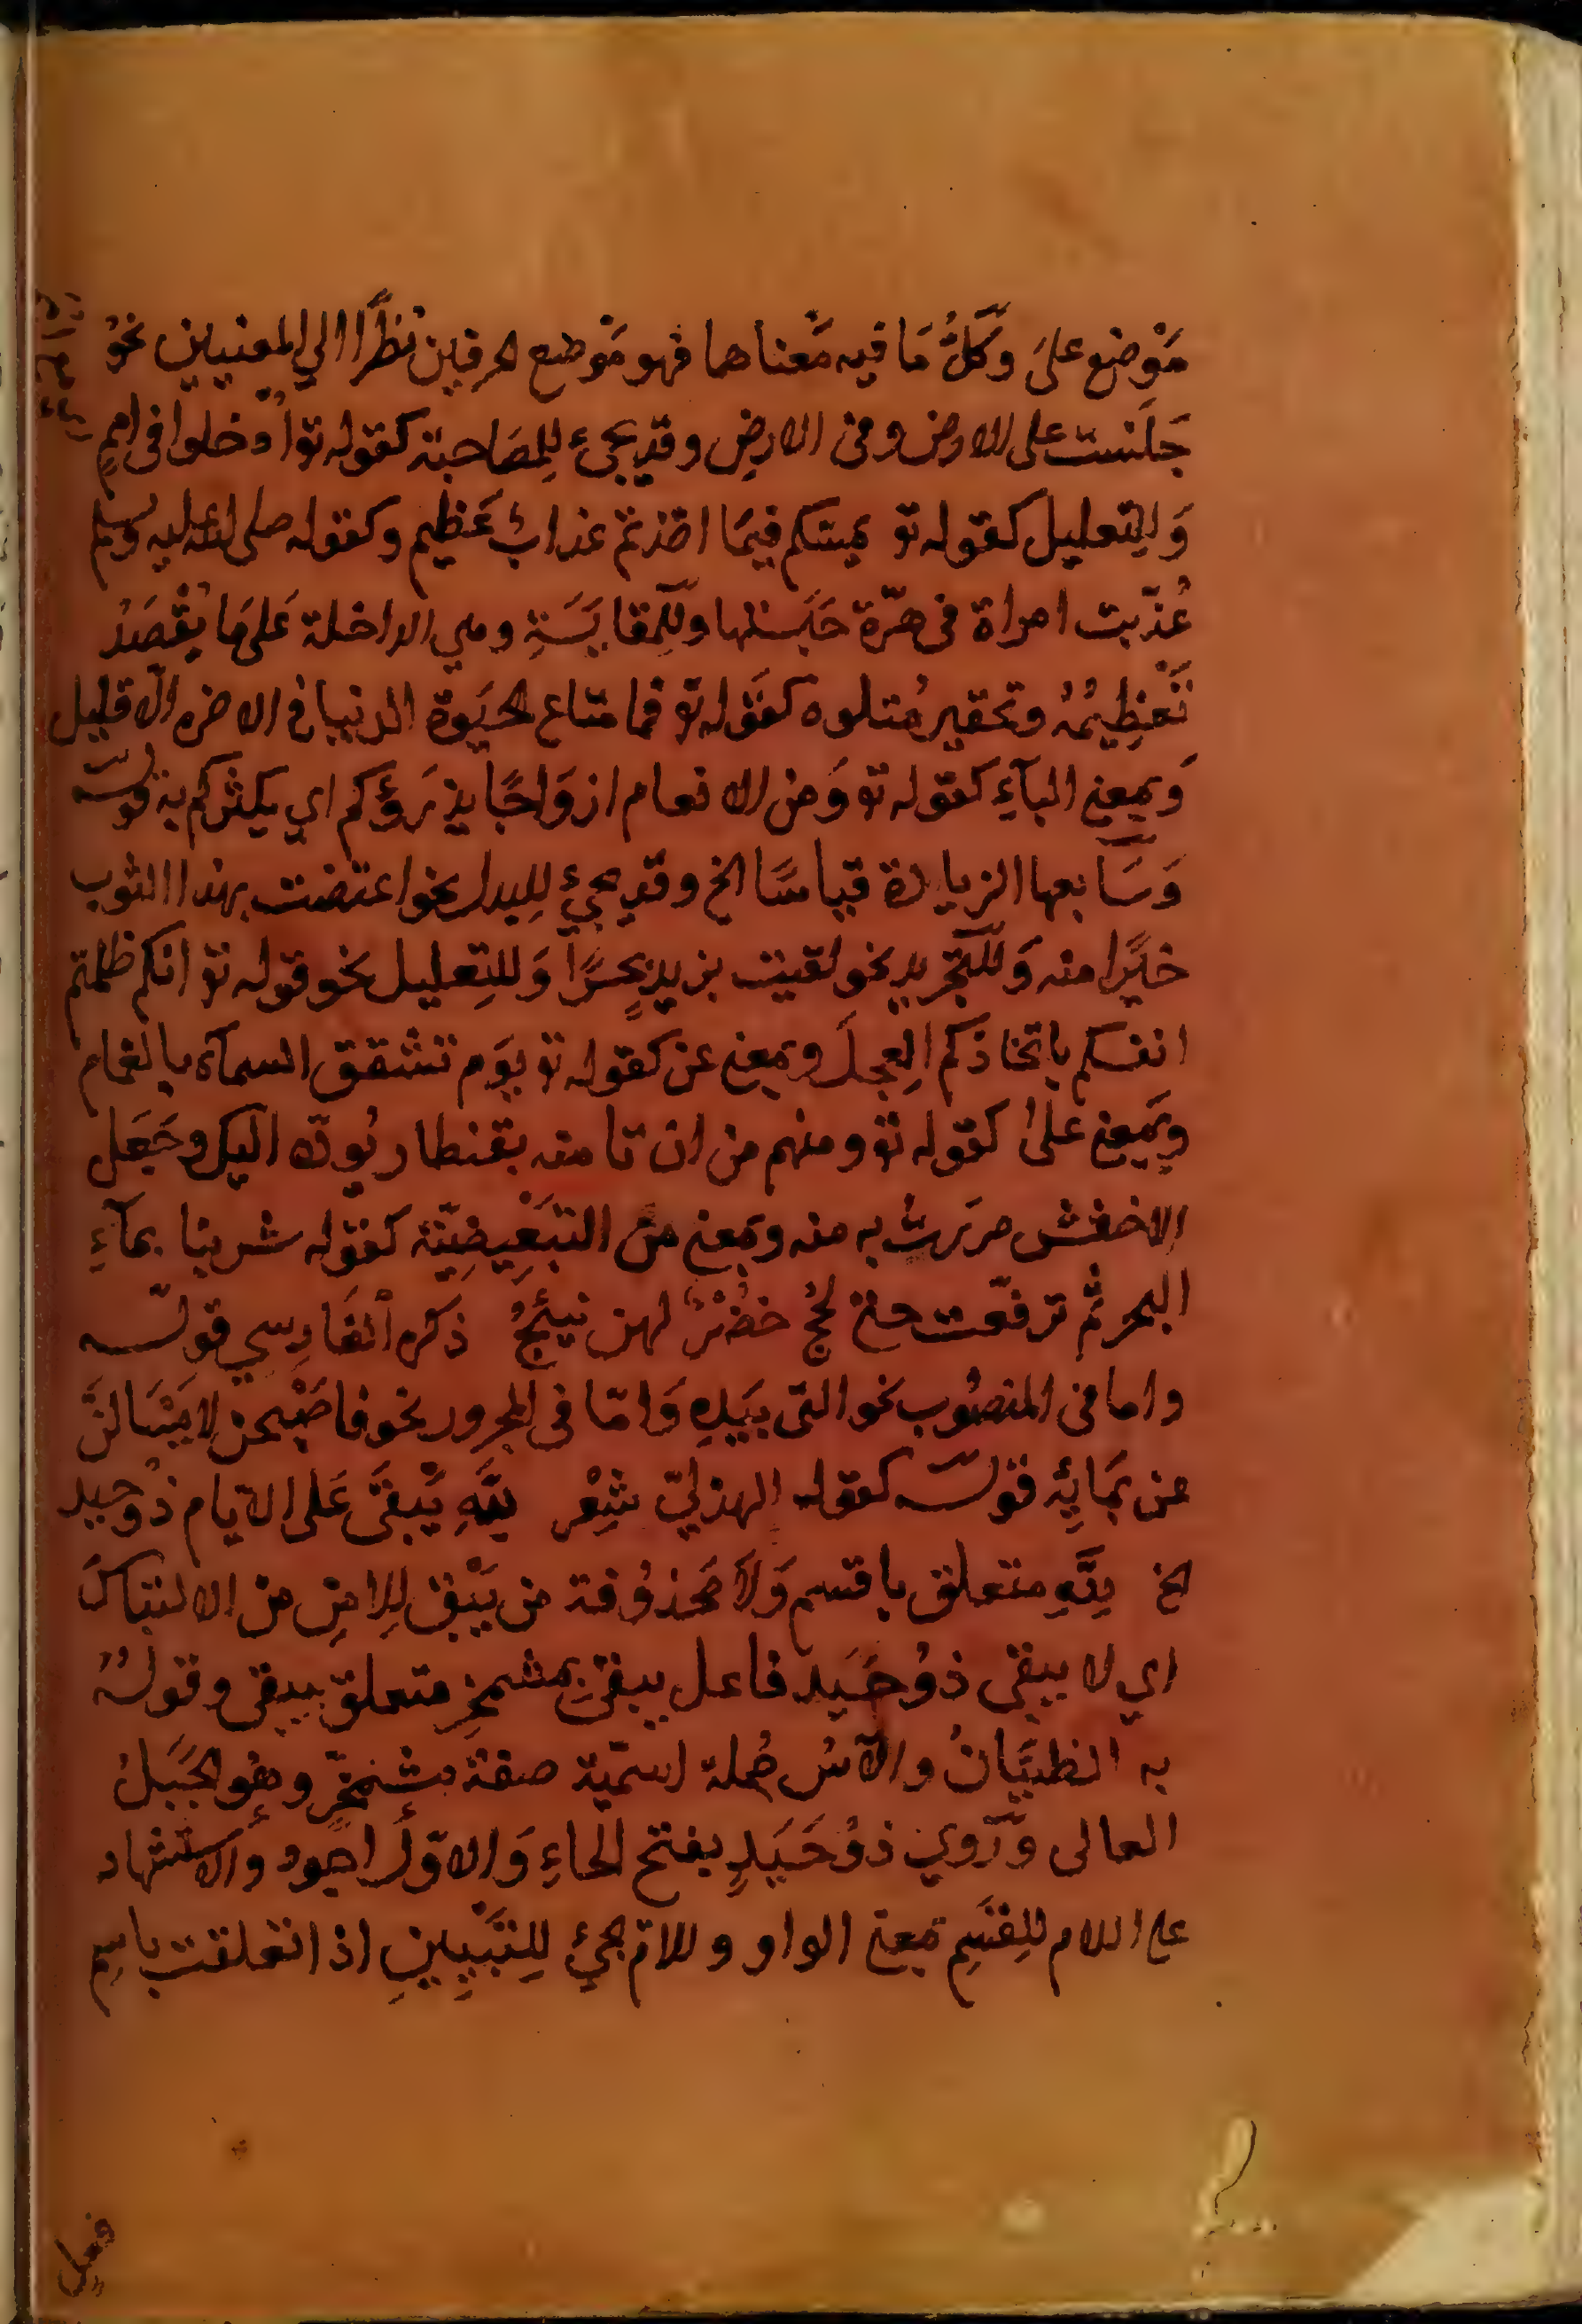 مَوْضع علىَ وَكلُّ مَا فيه مَعْناهما فهو مَوْضع الحرفين نظرًا الي المعنيين نحوُ
جَلَسْت على الارض وفى الارضِ وقد يجئُ لِلمصَاحبة كقوله تع ادخلوا فى اممٍ
وَلِلتعليل كقوله تع لمسّكم فيمَا اخذتم عذابٌ عَظيم وكقوله صلى الله عليه وسلم
عُذّبت امراة فى هرّة حَبَستها ولِلمقايَسَةِ وهي الداخلة عَلى مَا يُقْصَدُ
تَعْظِيْمُهُ وتحقير مُتلوه كقَوْله تع فما متاع الحيَوة الدنيا فى الاخره الّا قليل
وَبمعنى البآءِ كقوله تع وَمن الانعام ازوَاجًا يذرَؤكم اي يكثركم به قولـــه
وَسَابعها الزيادة قياسًا الخ وقد يجئُ لِلبدل نحو اعتضت بهذا الثوب
خيًرا منه وَلِلتجريد نحو لقيت بزيدٍ بحرًا وَللتِعليل نحو قوله تع انكم ظلمتم
انفسكم باتخاذكم العِجلَ وبمعنى عن كقوله تع يوَم تشقق السمآء بالغمام
وبمَعنى على كقوله تع ومنهم من ان تامنه بقنطار يُودّه اليك وجَعَل
الاخفش مررتُ به منه وبمَعنى من التبَعْيِضيّة كقوله شربنا بمآءِ
البحر ثم ترفّعت متى لجُجٌ خضْرٌ لهن نئيْجُ ذكره الفَارِسي قولـــه
واما فى المنصُوب نحو التى بيَدِهِ وَامّا فى المجرور نحو فاصْبحن لا يَسَالنَ
عن بمَابِه قولـــه كقوله الهذليّ شِعْر لِلّهِ يَبقَى عَلى الايام ذوْ حيد
الخ لِلَّهِ متعلق باقسم وَلَا محَذوُفة من يَبْقى لِلامنِ من الالتباسَ
اي لا يبقى ذوُ حَيَد فاعل يبقى بمشمخرِ متعلق بيبقى وقولُهُ
به الظيَّانُ والآسُ جُملة اسمّية صفة مشْمخرٍ وهُو الجَبلُ
العالى وَرُوي ذوُ حَيَدٍ بفتح الحاءِ وَالاوّل اجود والاستشهاد
على اللام لِلقسَمِ بمعنى الواو واللام يجئ لِلتَبّيينِ اذا تعلقت باسِم
فعل